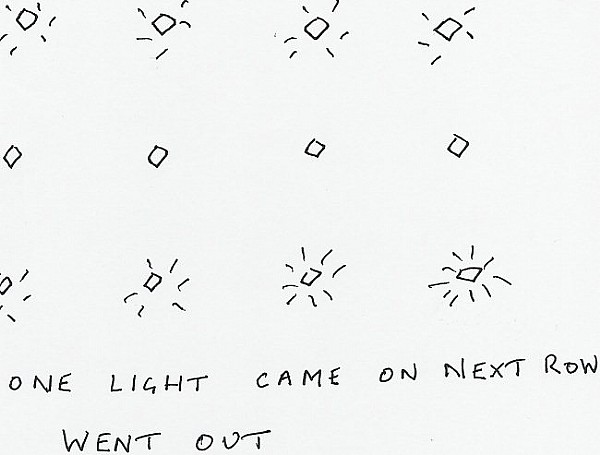 ONE LIGHT CAME ON NEXT ROW
WENT OUT